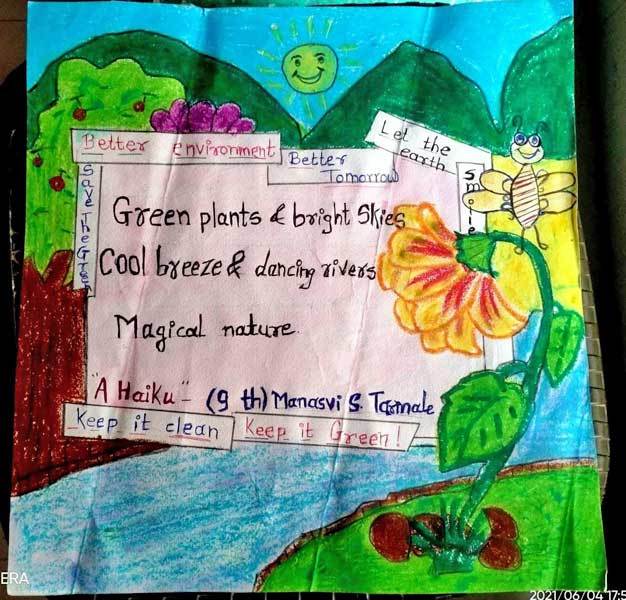 Better environment
Better
Tomorrow
Let the
earth
Smile
Save The
Green plants & bright Skies
Cool breeze & dancing rivers
Magical nature.
"A Haiku" - (9 th) Manasvi S.
Keep it clean
Keep it Green!
ERA
2021/06/04 17:5